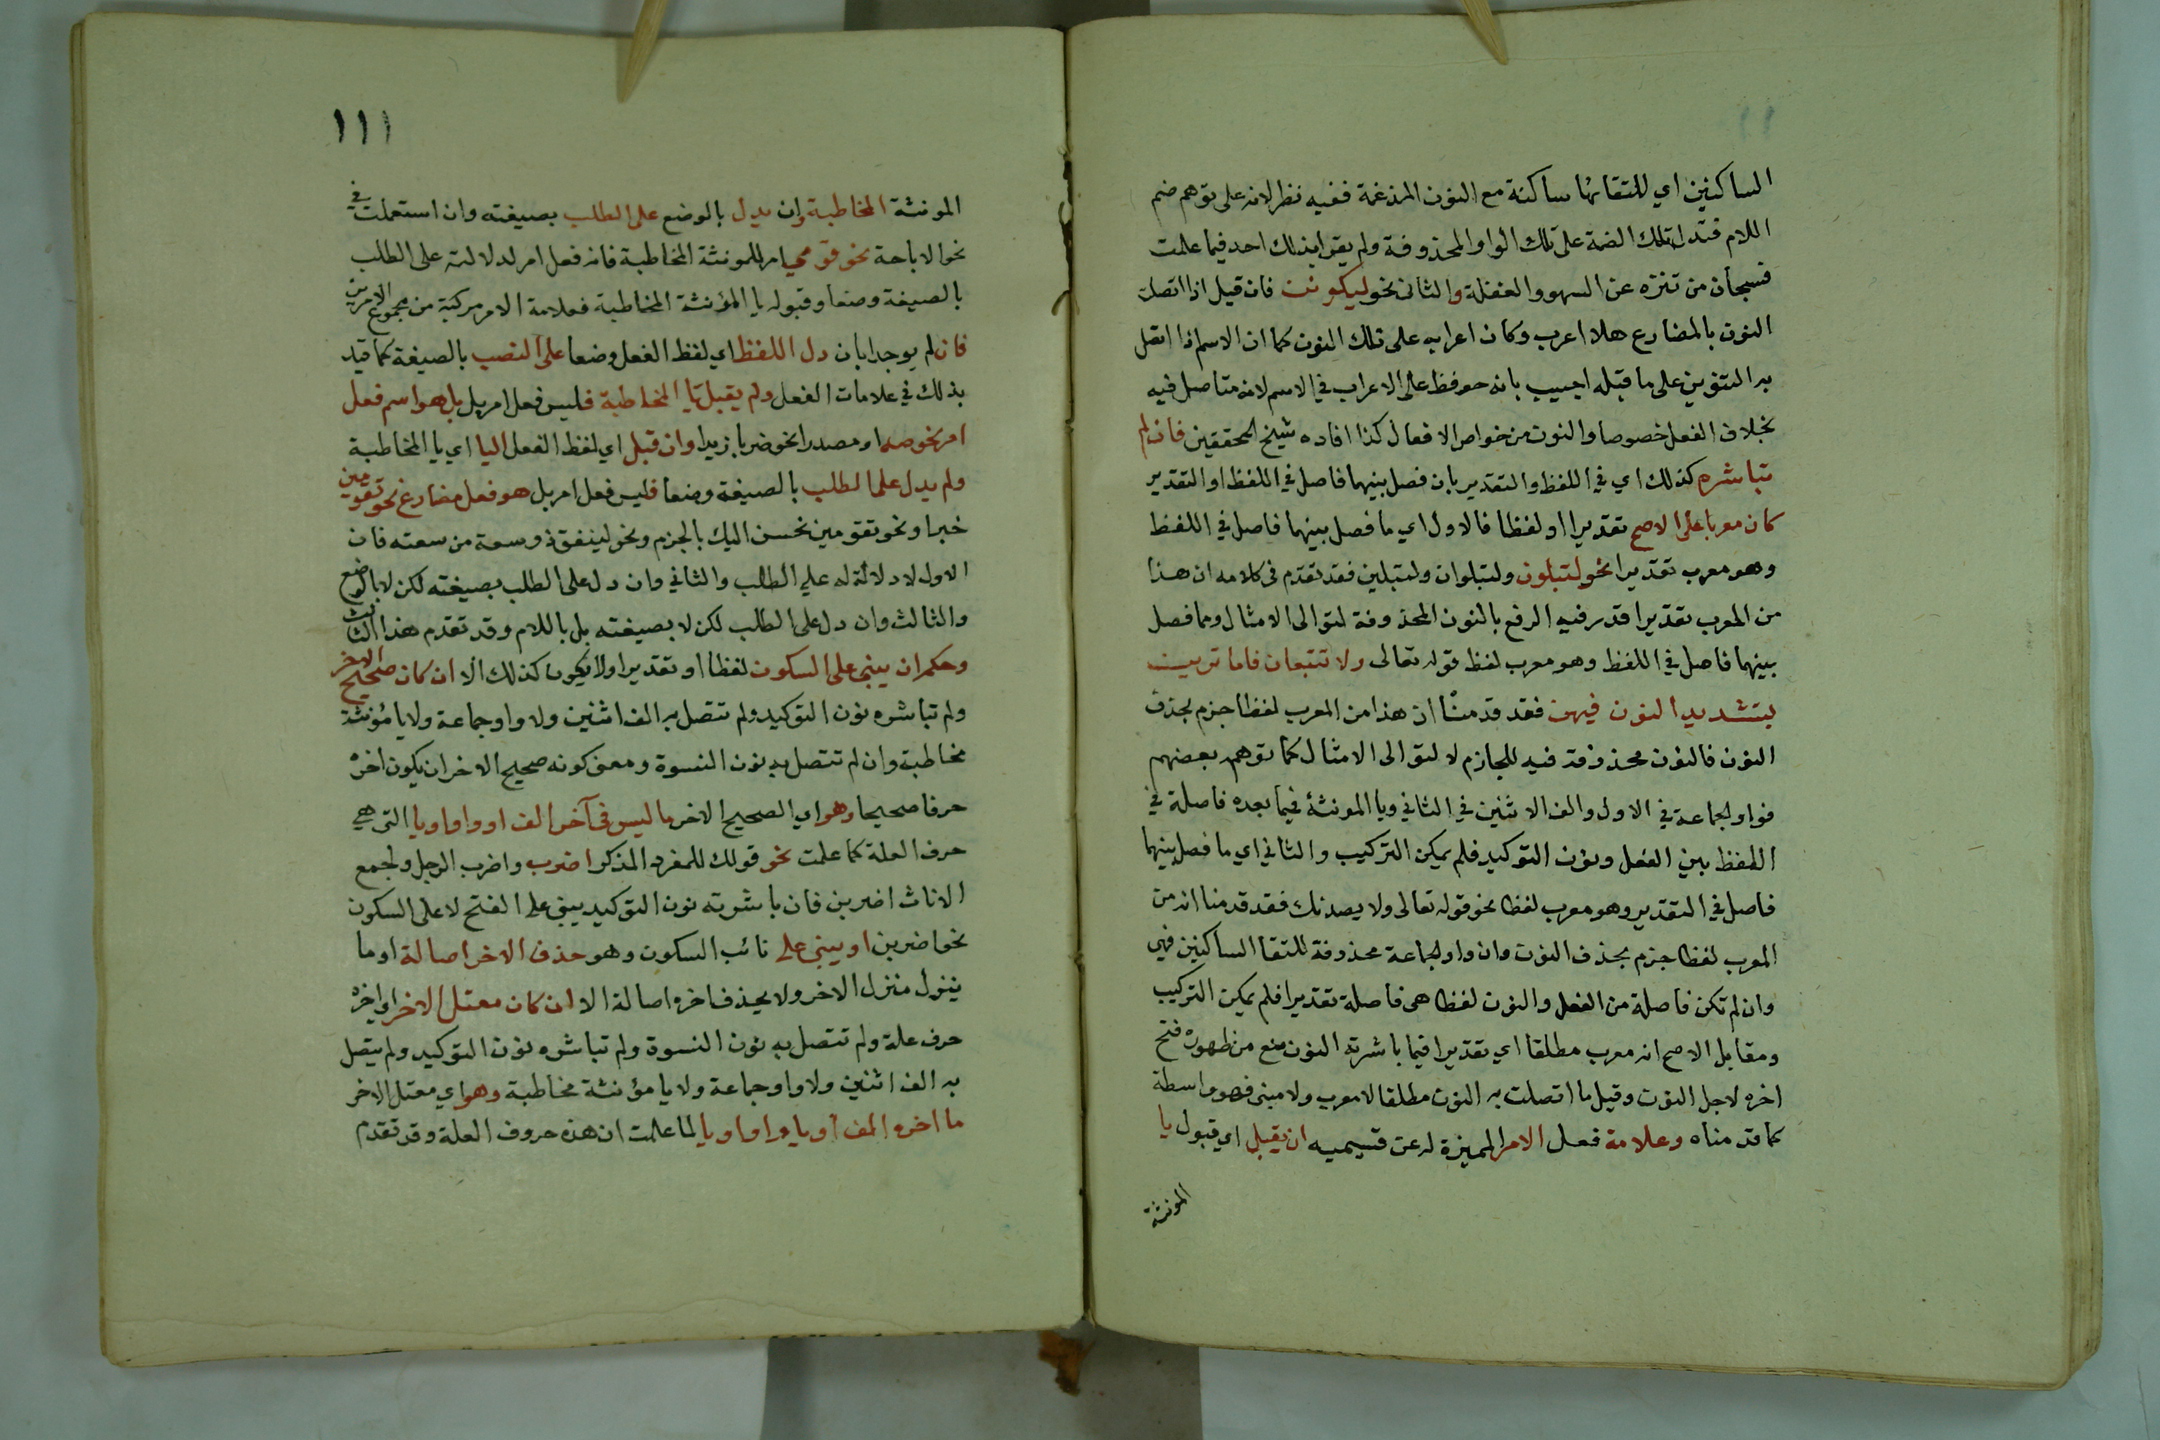 الساكنين اي للتقائها ساكنة مع النون المدغمة ففيه نظر لانه على توهم ضم
اللام فتدل تلك الضمة على تلك الواو المحذوفة ولم يقو بذلك احد فيما علمت
فسبحان من تنزه عن السهو والغفلة والثانى نحو ليكونن فان قيل اذا اتصلت
النون بالمضارع هلا اعرب وكان اعرابه على تلك النون كما ان الاسم اذا اتصل
به التنوين على ما قبله اجيب بانه حوفظ على الاعراب في الاسم لانه متاصل فيه
بخلاف الفعل خصوصا والنون من خواص الافعال كذا افاده شيخ المحققين فان لم
تباشره كذلك اي في اللفظ والتقدير بان فصل بينهما فاصل في اللفظ او التقدير
كان معربا على الاصح تقديرا او لفظا فالاول اي ما فصل بينها فاصل في اللفظ
وهو معرب تقديرا نحو لتبلون ولتبلوان ولتبلين فقد تقدم فى كلامه ان هذا
من المعرب تقديرا قدر فيه الرفع بالنون المحذوفة لتوالى الامثال ومما فصل
بينهما فاصل في اللفظ وهو معرب لفظ قوله تعالى ولا تتبعان فاما ترين
بتشديد النون فيهن فقد قدمنا ان هذا من المعرب لفظا جزم بحذف
النون فالنون محذوفة فيه للجازم لا لتوالى الامثال كما توهم بعضهم
فواو الجماعة في الاول والف الاثنين في الثاني ويا المونثة فيما بعده فاصلة في
اللفظ بين الفعل ونون التوكيد فلم يمكن التركيب والثاني اي ما فصل بينهما
فاصل في التقدير وهو معرب لفظا نحو قوله تعالى ولا يصدنك فقد قدمنا انه من
المعرب لفظا جزم بحذف النون وان واو الجماعة محذوفة للتقا الساكنين فهى
وان لم تكن فاصلة من الفعل والنون لفظا هى فاصلة تقديرا فلم يمكن التركيب
ومقابل الاصح انه معرب مطلقا اي تقديرا فيما باشرته النون منع من ظهوره فتح
اخره لاجل النون وقيل ما اتصلت به النون مطلقا لا معرب ولا مبنى فهو واسطة
كما قدمناه وعلامة فعل الامر المميزة له عن قسيميه ان يقبل اي قبول يا
المونثة
١١١
المونثة المخاطبة وان يدل بالوضع على الطلب بصيغته وان استعملت في
نحو الاباحة نحو قومي امر للمونثة المخاطبة فانه فعل امر لدلالته على الطلب
بالصيغة وضعا وقبوله يا المؤنثة المخاطبة فعلامة الامر مركبة من مجموع الامرين
فان لم يوجدا بان دل اللفظ اي لفظ الفعل وضعا على النصب بالصيغة كما قيد
بذلك في علامات الفعل ولم يقبل يا المخاطبة فليس فعل امر بل بل هو اسم فعل
امر نحو صه او مصدرا نحو ضربا زيدا وان قبل اي لفظ الفعل اليا اي يا المخاطبة
ولم يدل على الطلب بالصيغة وضعا فليس فعل امر بل هو فعل مضارع نحو تقومين
خبرا ونحو تقومين نحسن اليك بالجزم ونحو لينفق ذو سعة من سعته فان
الاول لا دلالة له على الطلب والثاني وان دل على الطلب بصيغته لكن لا بالوضع
والثالث وان دل على الطلب لكن لا بصيغته بل باللام وقد تقدم هذا الثالث
وحكمه ان يبنى على السكون لفظا او تقديرا ولا يكون كذلك الا ان كان صحيح الاخر
ولم تباشره نون التوكيد ولم تتصل به الف اثنين ولا واو جماعة ولا يا مؤنثة
مخاطبة وان لم تتصل به نون النسوة ومعنى كونه صحيح الاخر ان يكون اخره
حرفا صحيحا وهو اي الصحيح الاخر ما ليس فى آخره الف او واو او يا التي هي
حرف العلة كما علمت نحو قولك للمفرد المذكر اضرب واضرب الرجل ولجمع
الاناث اضربن فان باشرته نون التوكيد يبنى على الفتح لا على السكون
نحو اضربن او يبنى على نائب السكون وهو حذف الاخر اصالة او ما
ينزل منزلة الاخر ولا يحذف اخره اصالة الا ان كان معتل الاخر اي اخره
حرف علة ولم تتصل به نون النسوة ولم تباشره نون التوكيد ولم يتصل
به الف اثنين ولا واو جماعة ولا يا مؤنثة مخاطبة وهو اي معتل الاخر
ما اخره الف او يا او واو او يا لما علمت ان هذه حروف العلة وقد تقدم